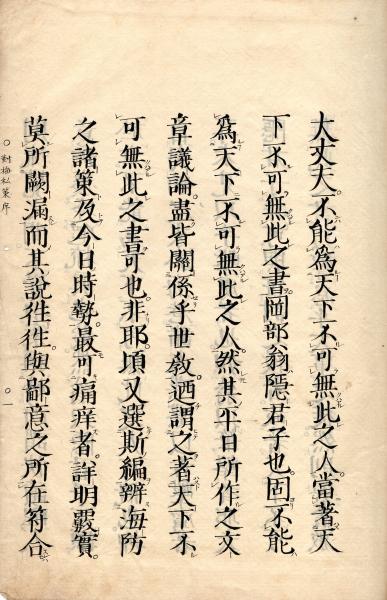 大丈夫不能爲天下不可無此之人當著天
下不可無此之書岡部翁隱君子也固不能
爲天下不可無此之人然其平日所作之文
章議論盡皆關係乎世敎迺謂之著天下不
可無此之書可也非耶頃又選斯編辨海防
之諸策及今日時勢最可痛痒者詳明覈實
莫所闕漏而其說往往與鄙意之所在符合
○對梅私策序
○一